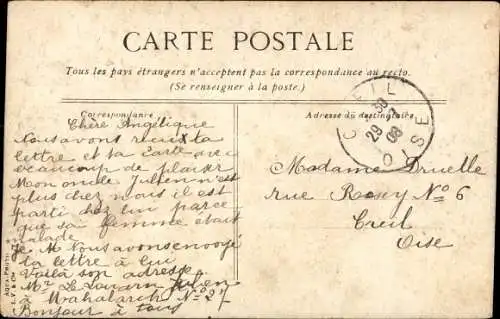 CARTE POSTALE
Tous les pays étrangers n'acceptent pas la correspondance au recto.
(Se renseigner à la poste.)
Correspondance
Chère Angélique
Nous avons recus ta
lettre et ta carte avec
beaucoup de plaisir
Moon oncle Julienn n'est
plus chez nous il est
parti chez lui parce
que sa femme était
malade
Je M Nous avons envoyé
ta lettre à lui
Voilà son adresse
Mr Le Louarn Julien
à Mahalarch No 27
Bonjour à tous
Adresse du destinataire
Madame Druelle
rue Rosey No 6
Creil
Oise
CREIL
29 -7
08
OISE